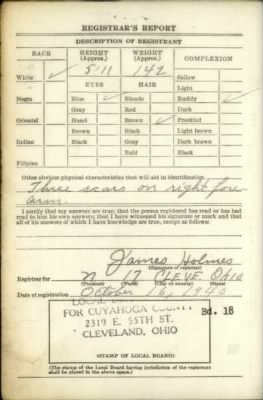 REGISTRAR'S REPORT
DESCRIPTION OF REGISTRANT
RACE HEIGHT (Approx.) WEIGHT (Approx.) COMPLEXION
5'11 142
White ✓ Sallow
EYES HAIR Light
Negro Blue ✓ Blonde Ruddy ✓
Gray Red Dark
Oriental Hazel Brown ✓ Freckled
Brown Black Light brown
Indian Black Gray Dark brown
Bald Black
Filipino
Other obvious physical characteristics that will aid in identification
Three scars on right fore
arm.
I certify that my answers are true; that the person registered has read or has had
read to him his own answers; that I have witnessed his signature or mark and that
all of his answers of which I have knowledge are true, except as follows:
James Holmes
(Signature of registrar)
Registrar for N 17 CLEVE. Ohio
(Precinct) (Ward) (City or county) (State)
Date of registration October 16, 1940
LOCAL
FOR CUYAHOGA COUNTY Bd. 18
2319 E. 55TH ST.
CLEVELAND, OHIO
(STAMP OF LOCAL BOARD)
(The stamp of the Local Board having jurisdiction of the registrant
shall be placed in the above space.)